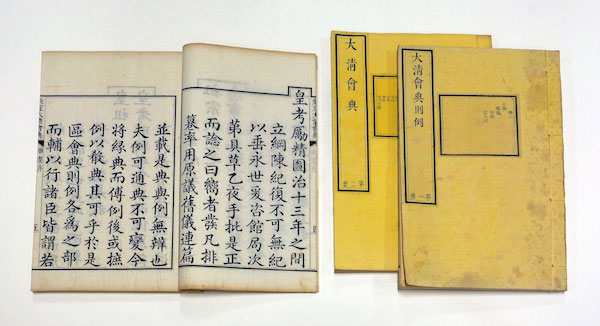 皇考勵精圖治十三年之間
立綱陳紀復不可無紀
以垂永世爰咨館局次
第具草乙夜手批是正
而諗之曰嚮者發凡排
纂率用原議舊儀連篇
並載是典與例無辨也
夫例可通典不可變今
將緣典而傳例後或摭
例以殽典其可乎於是
區會典則例各為之部
而輔以行諸臣皆謂若
大清會典則例
第一冊
大清會典
第二冊